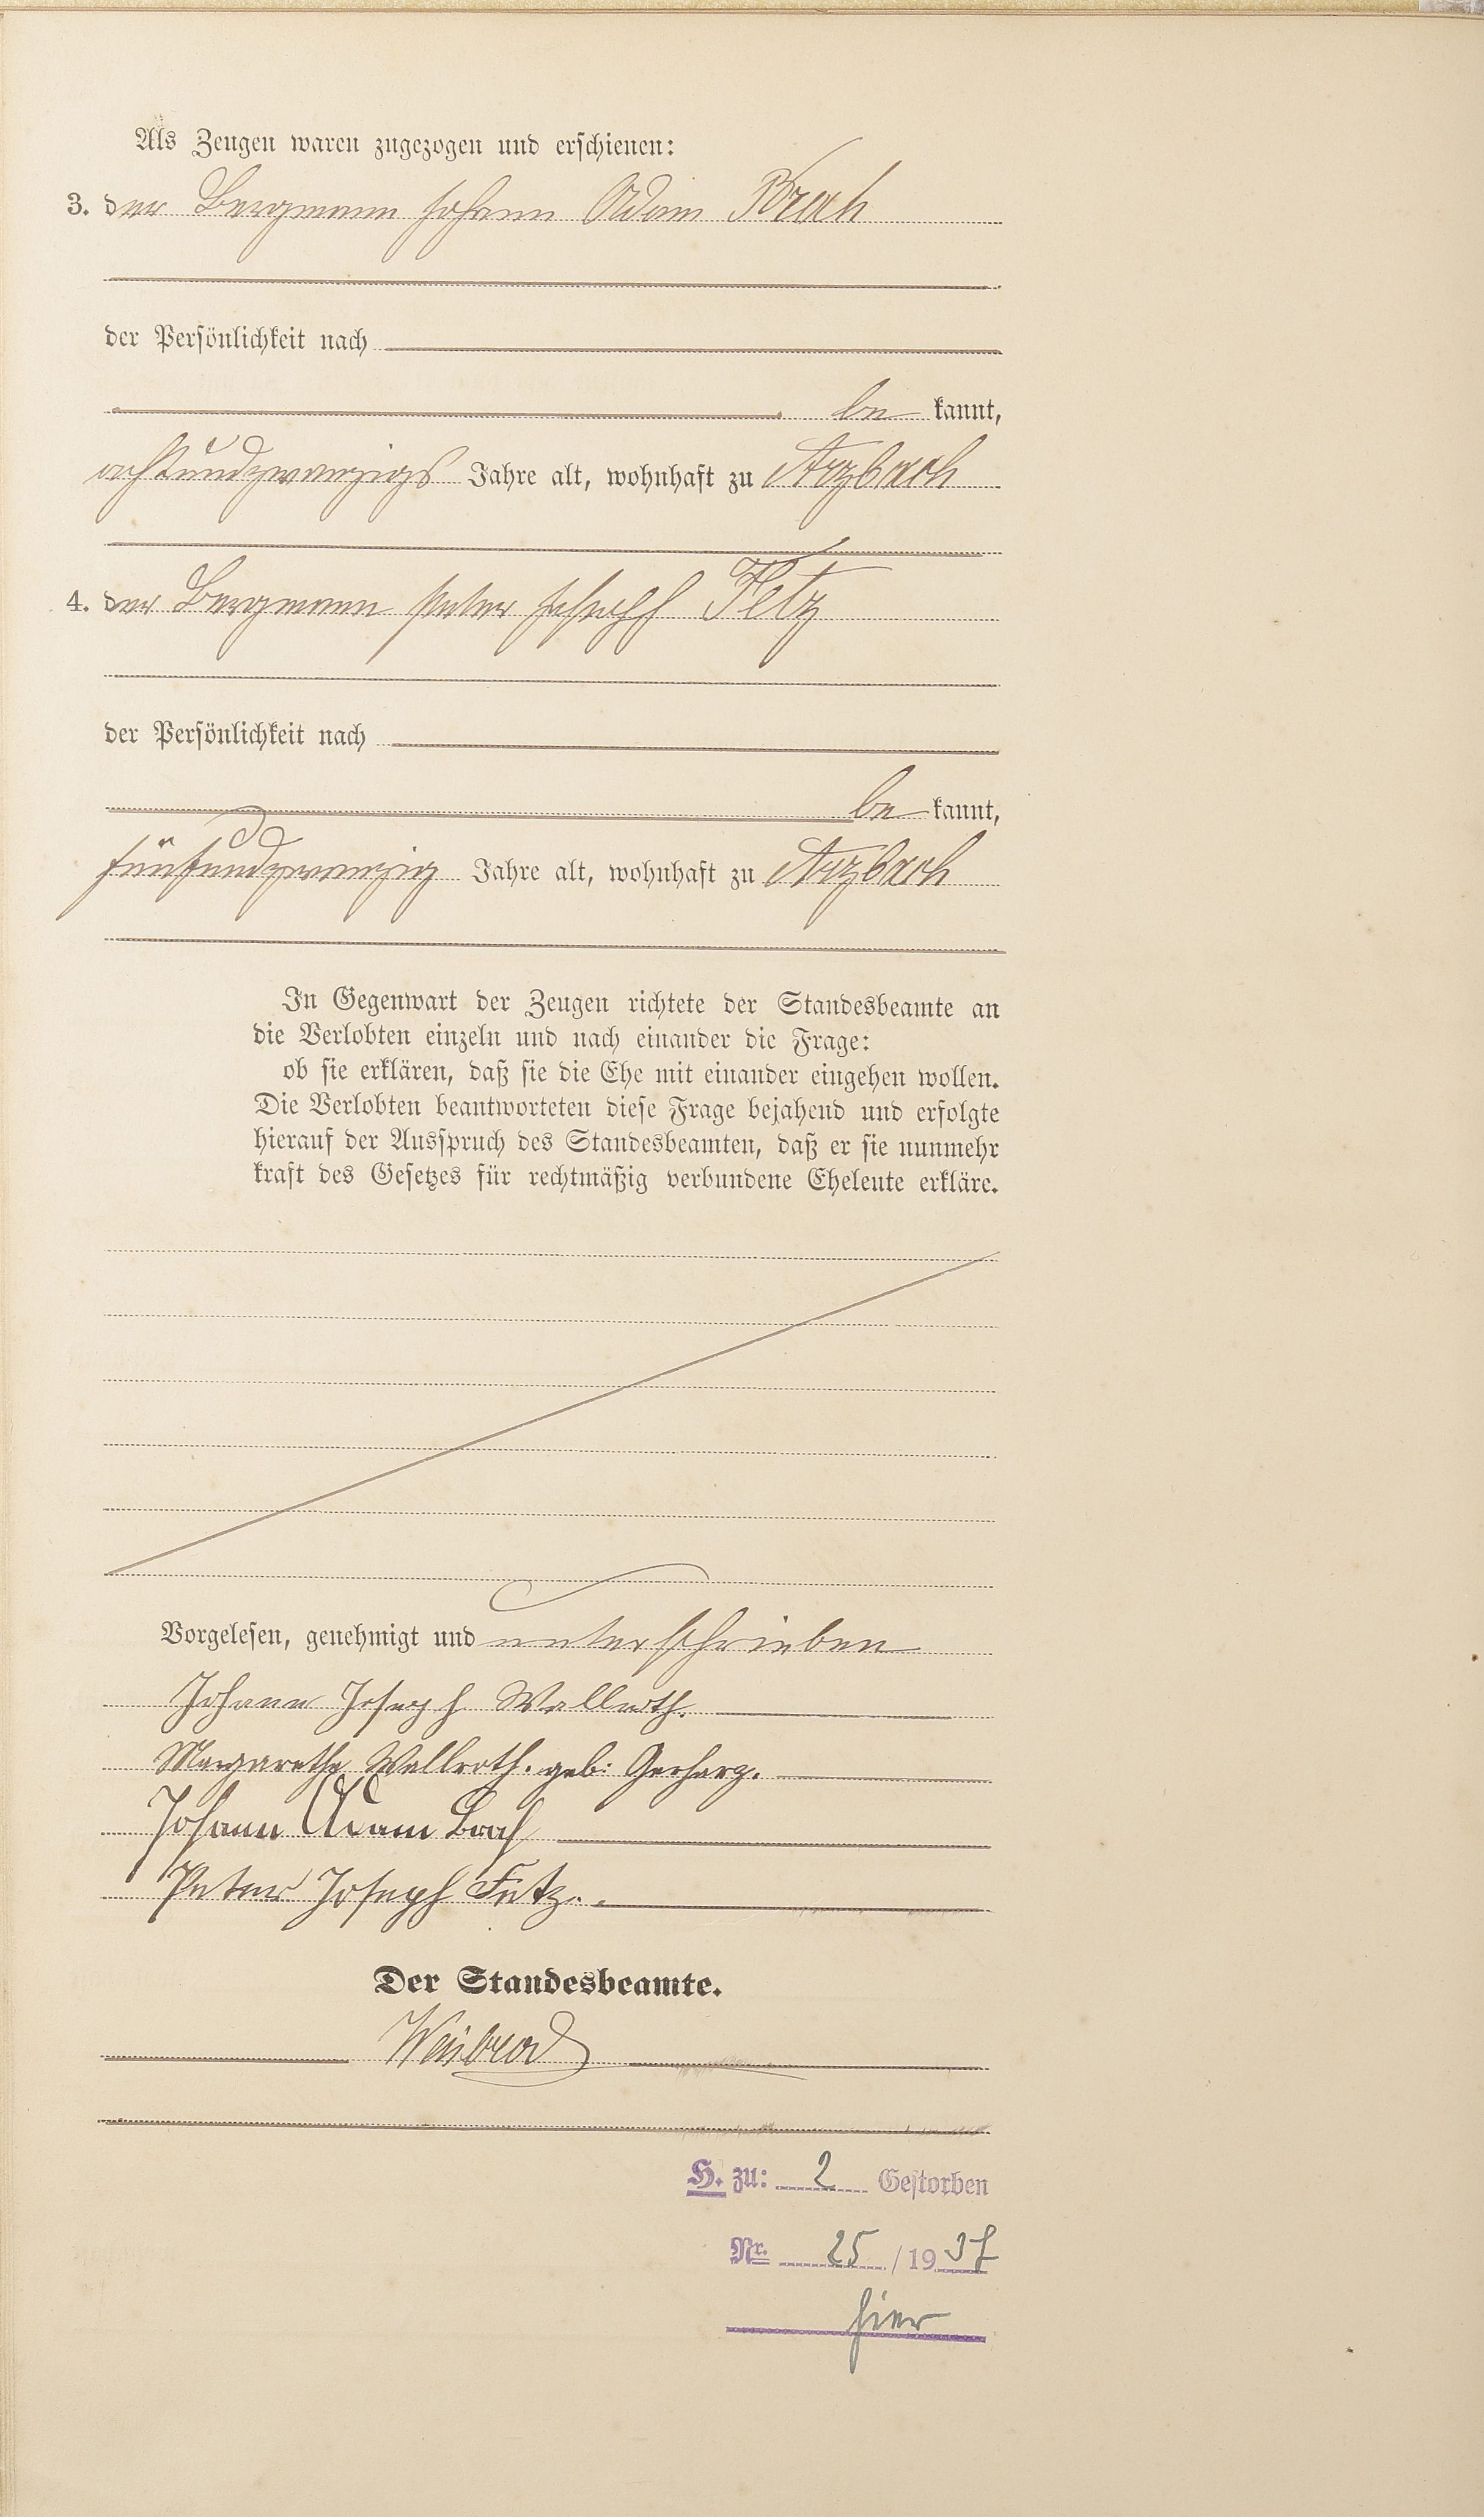 Als Zeugen waren zugezogen und erschienen:
3. der Bergmann Johann Adam Brach
der Persönlichkeit nach
be kannt,
achtundzwanzig Jahre alt, wohnhaft zu Arzbach
4. der Bergmann Peter Joseph Fetz
der Persönlichkeit nach
be kannt,
fünfundzwanzig Jahre alt, wohnhaft zu Arzbach
In Gegenwart der Zeugen richtete der Standesbeamte an
die Verlobten einzeln und nach einander die Frage:
ob sie erklären, daß sie die Ehe mit einander eingehen wollen.
Die Verlobten beantworteten diese Frage bejahend und erfolgte
hierauf der Ausspruch des Standesbeamten, daß er sie nunmehr
kraft des Gesetzes für rechtmäßig verbundene Eheleute erkläre.
Vorgelesen, genehmigt und unterschrieben
Johann Joseph Wallroth.
Margaretha Wallroth. geb: Gerharz.
Johann Adam Brach
Peter Joseph Fetz.
Der Standesbeamte.
H. zu: 2 Gestorben
Nr. 25 / 1937
hier